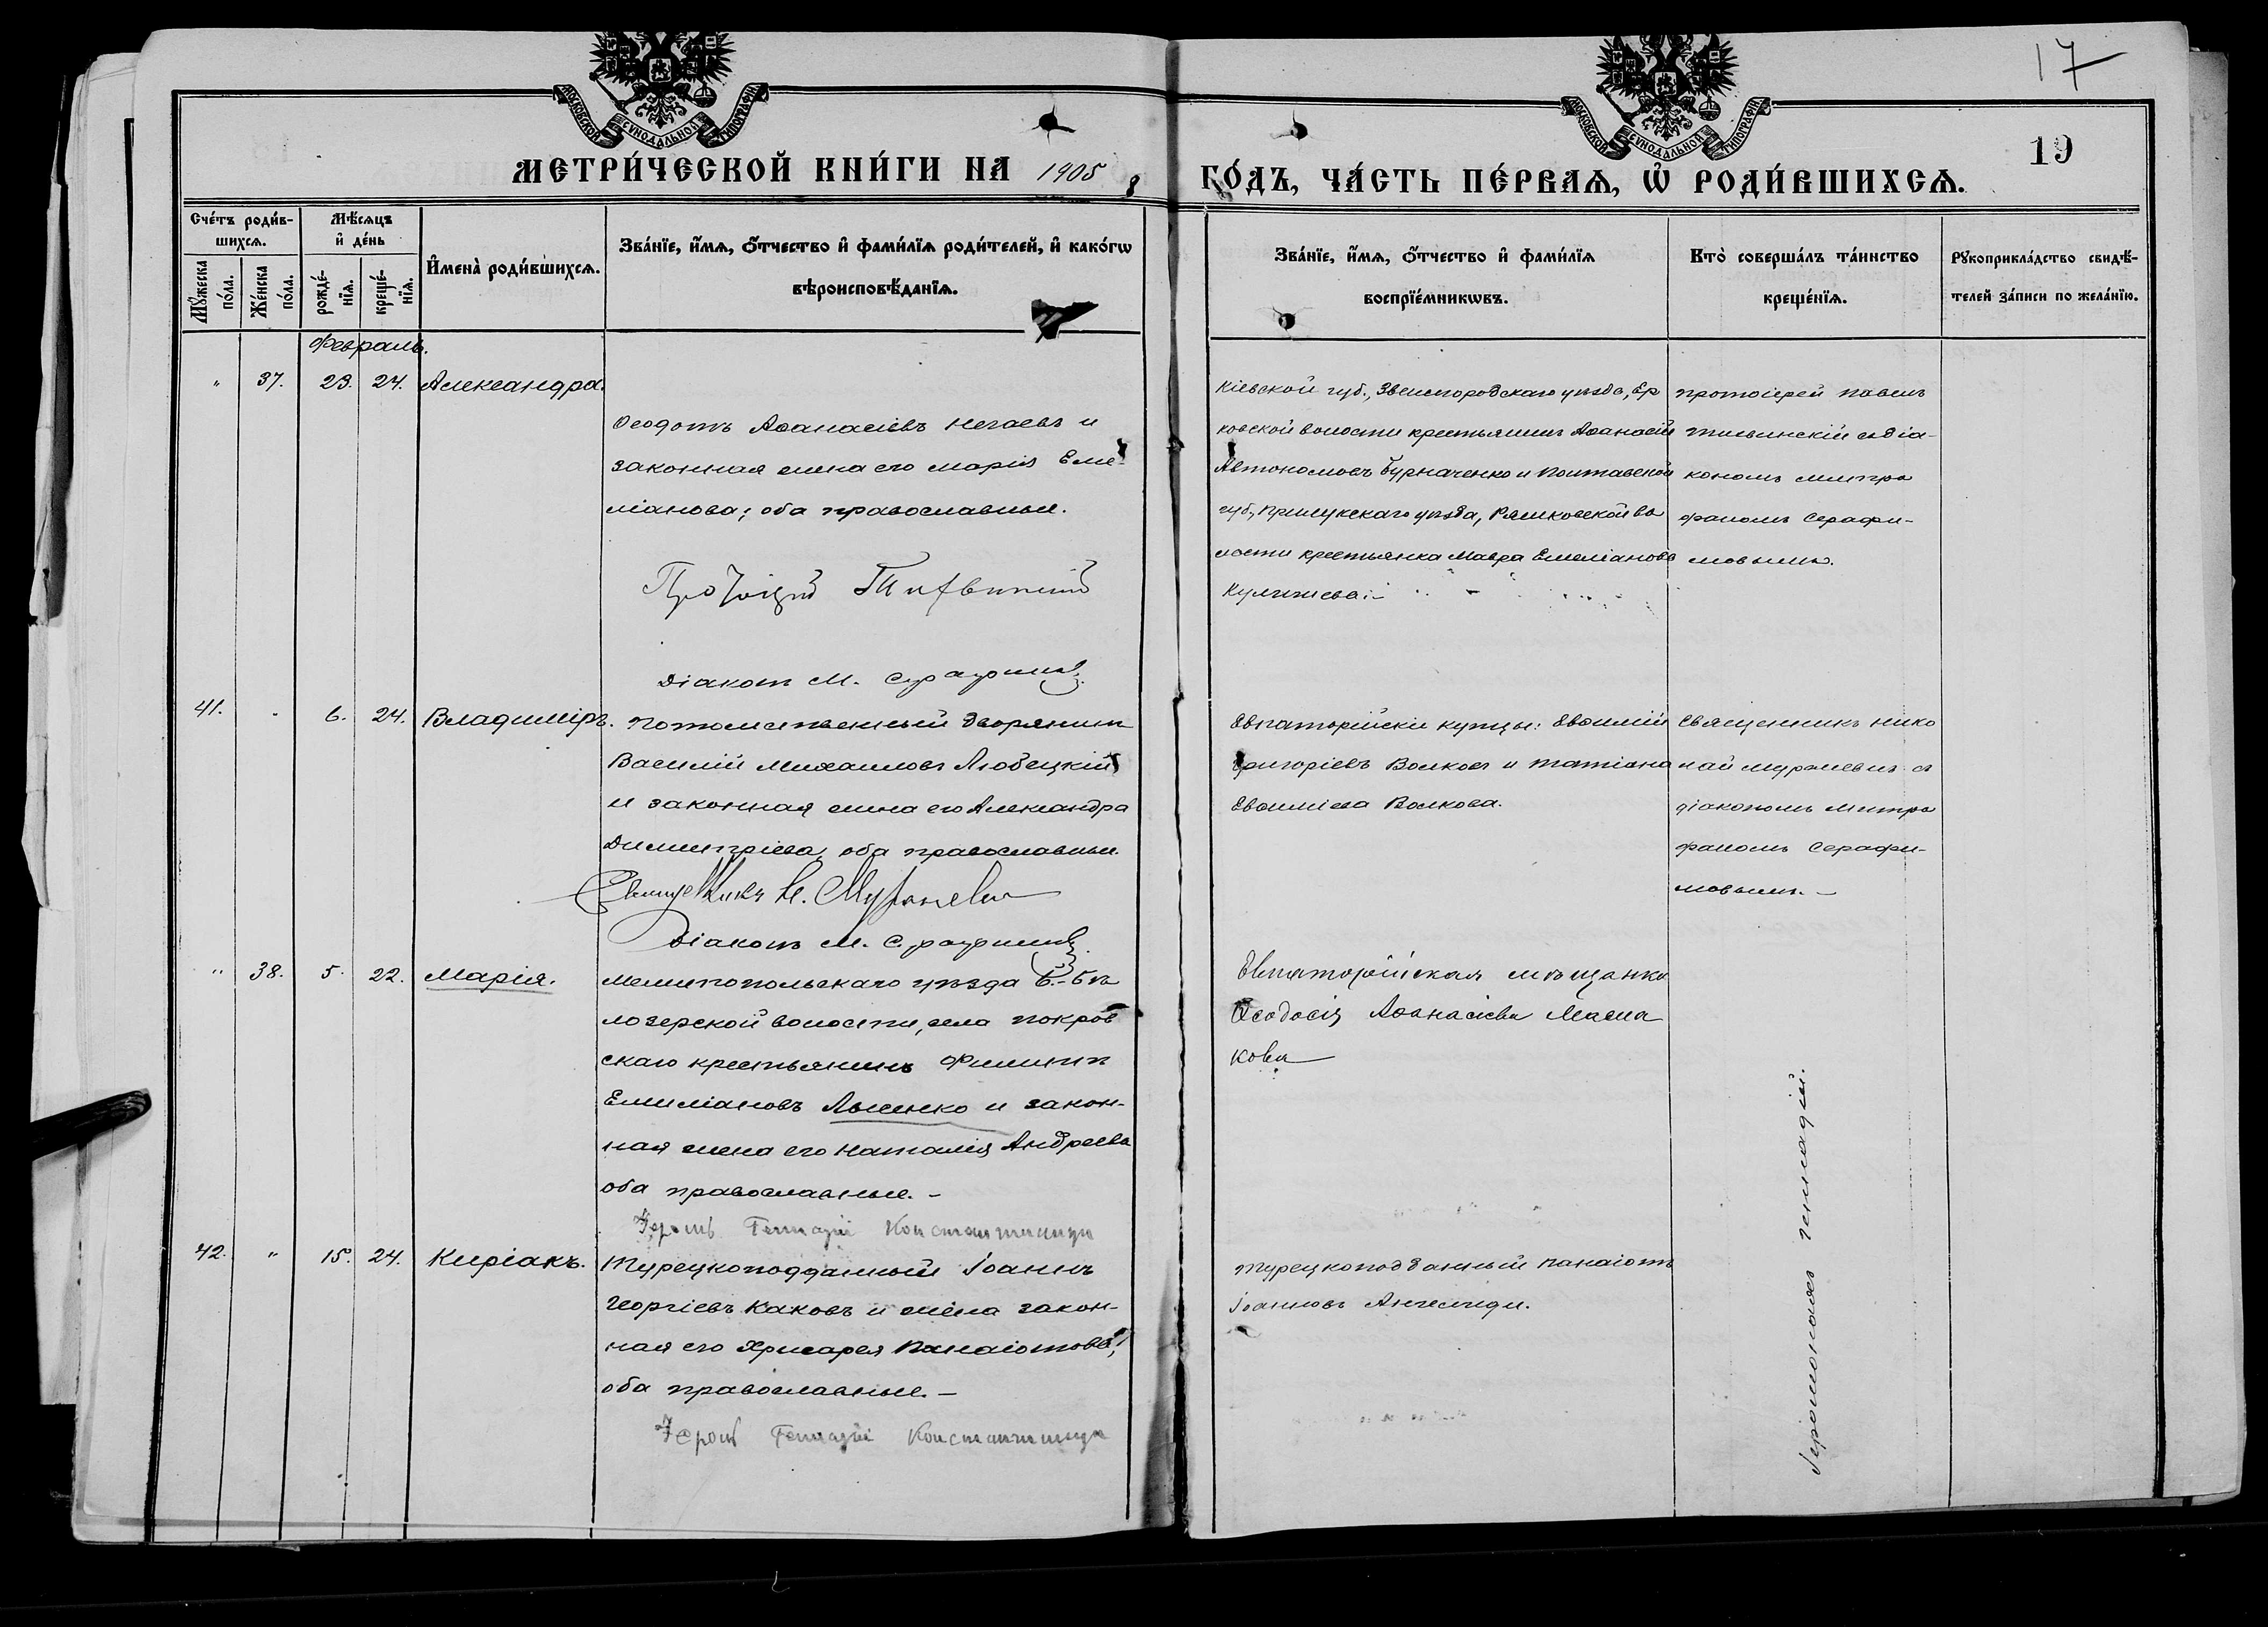 17
19
МОСКОВСКОЙ СУНОДАЛЬНОЙ ТИПОГРАФІИ
МОСКОВСКОЙ СУНОДАЛЬНОЙ ТИПОГРАФІИ
МЕТРИ́ЧЕСКОЙ КНИ́ГИ НА 1905
ГО́ДЪ, ЧА́СТЬ ПЕ́РВАѦ, Ѽ РОДИ́ВШИХСѦ.
Сче́тъ роди́в-
шихсѧ.
Мꙋ́жеска по́ла.
Же́нска по́ла.
Мѣ́сяцъ
и҆ де́нь
рожде́-
нїѧ.
креще́-
нїѧ.
И҆мена̀ роди́вшихсѧ.
Зва́нїе, и҆́мѧ, ѻ҆́тчество и҆ фами́лїѧ роди́телей, и҆ како́гѡ
вѣроисповѣ́данїѧ.
Зва́нїе, и҆́мѧ, ѻ҆́тчество и҆ фами́лїѧ
воспрїе́мникѡвъ.
Кто̀ соверша́лъ та́инство
креще́нїѧ.
Рꙋкоприкла́дство свидѣ́-
телей за́писи по жела́нїю.
Февраль.
" 37. 23. 24. Александра.
Ѳеодотъ Аѳанасіевъ Негаевъ и
законная жена его Марія Еме-
ліанова; оба православные.
Протоіерей Тихвинскій
Діаконъ М. Серафимов
Кіевской губ., Звенигородскаго уѣзда, Ер
ковской волости крестьянинъ Аѳанасій
Автономовъ Бурначенко и Полтавской
губ., Прилукскаго уѣзда, Ряшковской во
лости крестьянка Мавра Емеліанова
протоіерей Павелъ
Тихвинскій съ діа-
кономъ Митро
фаномъ Серафи-
мовымъ.
41. 6. 24. Владиміръ.
Потомственный дворянинъ
Василій Михаиловъ Любецкій
и законная жена его Александра
Димитріева, оба православные.
Священникъ Н. Мураневич
Діаконъ М. Серафимов
Евпаторійскіе купцы: Евѳимій
Григоріевъ Волковъ и Татіана
Евѳиміева Волкова.
Священникъ Нико
лай Мураневич съ
діакономъ Митро
фаномъ Серафи-
мовымъ. —
" 38. 5. 22. Марія.
Мелитопольскаго уѣзда Б.-Бѣ
лозерской волости, села Покров
скаго крестьянинъ Филиппъ
Емиліановъ Лысенко и закон-
ная жена его Наталія Андреева
оба православные. —
Іером. Геннадій Константиниди
Евпаторійская мѣщанка
Ѳеодосія Аѳанасіева Масла
кова
42. " 15. 24. Киріакъ.
Турецкоподданный Іоаннъ
Георгіевъ Каковъ и жена закон-
ная его Хрисарея Панаіотова,
оба православные. —
Іером. Геннадій Константиниди
Турецкоподданный Панаіотъ
Іоанновъ Ангелиди.
Іеромонахъ Геннадій.